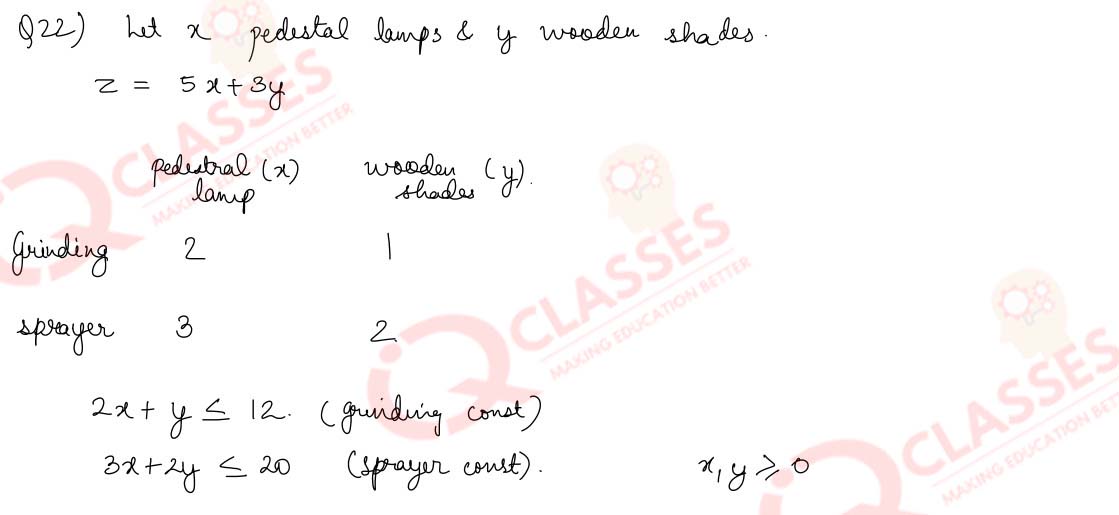 Q22) Let x pedestal lamps & y wooden shades.
z = 5x+3y
pedestral (x) wooden (y).
lamp shades
Grinding 2 1
sprayer 3 2
2x + y ≤ 12. (grinding const)
3x+2y ≤ 20 (sprayer const). x, y ≥ 0
CLASSES
MAKING EDUCATION BETTER
iQ CLASSES
MAKING EDUCATION BETTER
iQ CLASSES
MAKING EDUCATION BETTER